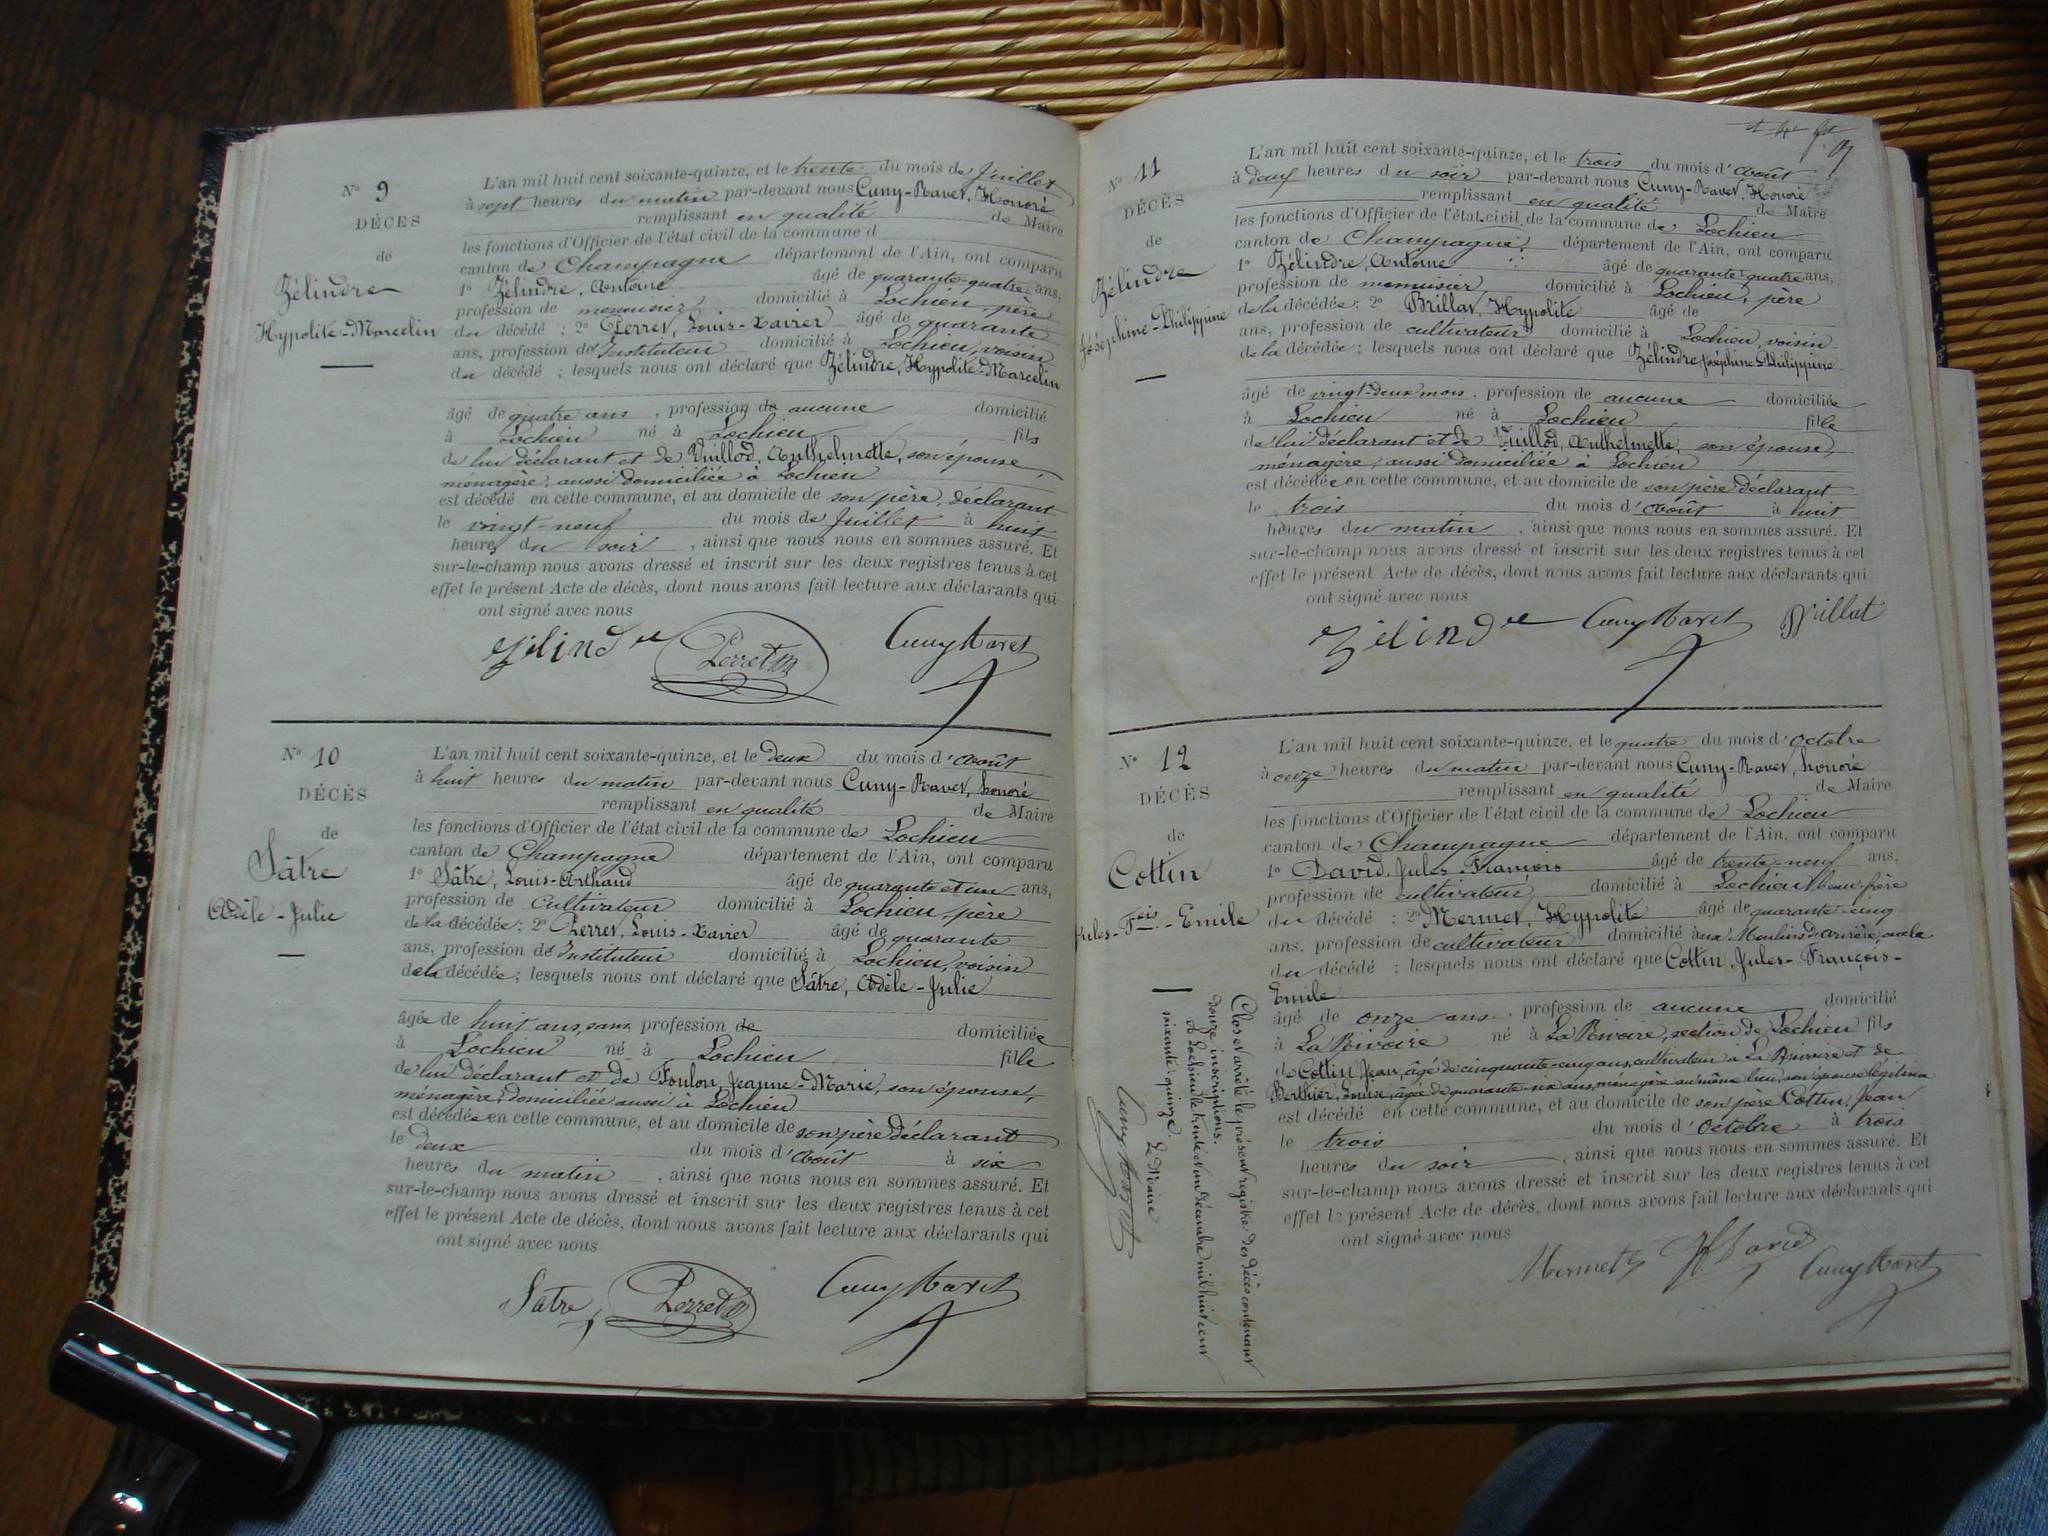 N° 9
DÉCÈS
de
Zélindre
Hypolite-Marcelin
L'an mil huit cent soixante-quinze, et le trente du mois de Juillet
à sept heures du matin par-devant nous Cuny-Ravet, Honoré
remplissant en qualité de Maire
les fonctions d'Officier de l'état civil de la commune d
canton de Champagne département de l'Ain, ont comparu
1° Zélindre, Antoine âgé de quarante-quatre ans,
profession de menuisier, domicilié à Lochieu, père
du décédé ; 2° Perret, Louis-Xavier âgé de quarante
ans, profession de Instituteur domicilié à Lochieu, voisin
du décédé ; lesquels nous ont déclaré que Zélindre, Hypolite-Marcelin
âgé de quatre ans , profession de aucune domicilié
à Lochieu né à Lochieu fils
de lui déclarant et de Vuillod, Anthelmette, son épouse,
ménagère, aussi domiciliée à Lochieu
est décédé en cette commune, et au domicile de son père, déclarant
le vingt-neuf du mois de Juillet à huit
heures du soir , ainsi que nous nous en sommes assuré. Et
sur-le-champ nous avons dressé et inscrit sur les deux registres tenus à cet
effet le présent Acte de décès, dont nous avons fait lecture aux déclarants qui
ont signé avec nous
Zélindre Perret Cuny Ravet
N° 10
DÉCÈS
de
Sâtre
Adèle-Julie
L'an mil huit cent soixante-quinze, et le deux du mois d'Août
à huit heures du matin par-devant nous Cuny-Ravet, honoré
remplissant en qualité de Maire
les fonctions d'Officier de l'état civil de la commune de Lochieu
canton de Champagne département de l'Ain, ont comparu
1° Sâtre, Louis-Arthaud âgé de quarante et un ans,
profession de Cultivateur domicilié à Lochieu, père
de la décédée ; 2° Perret, Louis-Xavier âgé de quarante
ans, profession de Instituteur domicilié à Lochieu, voisin
de la décédée ; lesquels nous ont déclaré que Sâtre, Adèle-Julie
âgée de huit ans, sans profession de domiciliée
à Lochieu né à Lochieu fille
de lui déclarant et de Foulon, Jeanne-Marie, son épouse,
ménagère, domiciliée aussi à Lochieu
est décédée en cette commune, et au domicile de son père déclarant
le deux du mois d'Août à six
heures du matin , ainsi que nous nous en sommes assuré. Et
sur-le-champ nous avons dressé et inscrit sur les deux registres tenus à cet
effet le présent Acte de décès, dont nous avons fait lecture aux déclarants qui
ont signé avec nous
Satre Perret Cuny Ravet
N° 11
DÉCÈS
de
Zélindre
Joséphine-Philippine
L'an mil huit cent soixante-quinze, et le trois du mois d'Août
à deux heures du soir par-devant nous Cuny-Ravet, Honoré
remplissant en qualité de Maire
les fonctions d'Officier de l'état civil de la commune de Lochieu
canton de Champagne, département de l'Ain, ont comparu
1° Zélindre, Antoine âgé de quarante-quatre ans,
profession de menuisier, domicilié à Lochieu, père
de la décédée ; 2° Brillat, Hypolite âgé de
ans, profession de cultivateur domicilié à Lochieu, voisin
de la décédée ; lesquels nous ont déclaré que Zélindre, Joséphine-Philippine
âgé de vingt-deux mois , profession de aucune domiciliée
à Lochieu né à Lochieu fille
de lui déclarant et de Vuillod, Anthelmette, son épouse,
ménagère, aussi domiciliée à Lochieu
est décédée en cette commune, et au domicile de son père déclarant
le trois du mois d'Août à huit
heures du matin , ainsi que nous nous en sommes assuré. Et
sur-le-champ nous avons dressé et inscrit sur les deux registres tenus à cet
effet le présent Acte de décès, dont nous avons fait lecture aux déclarants qui
ont signé avec nous
Zélindre Cuny Ravet Brillat
N° 12
DÉCÈS
de
Cottin
Jules-Fçois-Emile
L'an mil huit cent soixante-quinze, et le quatre du mois d'Octobre
à onze heures du matin par-devant nous Cuny-Ravet, honoré
remplissant en qualité de Maire
les fonctions d'Officier de l'état civil de la commune de Lochieu
canton de Champagne département de l'Ain, ont comparu
1° David, Jules-François âgé de trente-neuf ans,
profession de cultivateur, domicilié à Lochieu, beau-frère
du décédé ; 2° Mermet, Hypolite âgé de quarante-cinq
ans, profession de cultivateur domicilié aux Moulins d'arvière,
du décédé ; lesquels nous ont déclaré que Cottin, Jules-François-
Emile
âgé de onze ans , profession de aucune domicilié
à La Rivoire né à La Rivoire, section de Lochieu fils
de Cottin Jean, âgé de cinquante-cinq ans, cultivateur à La Rivoire et de
Berthier, Louise, âgée de quarante-six ans, ménagère au même lieu, son épouse légitime
est décédé en cette commune, et au domicile de son père Cottin, Jean
le trois du mois d'Octobre à trois
heures du soir , ainsi que nous nous en sommes assuré. Et
sur-le-champ nous avons dressé et inscrit sur les deux registres tenus à cet
effet le présent Acte de décès, dont nous avons fait lecture aux déclarants qui
ont signé avec nous
Mermet David Cuny Ravet
Clos et arrêté le présent registre des décès contenant
douze inscriptions.
à Lochieu le trente et un décembre mil huit cent
soixante-quinze. Le Maire
Cuny Ravet